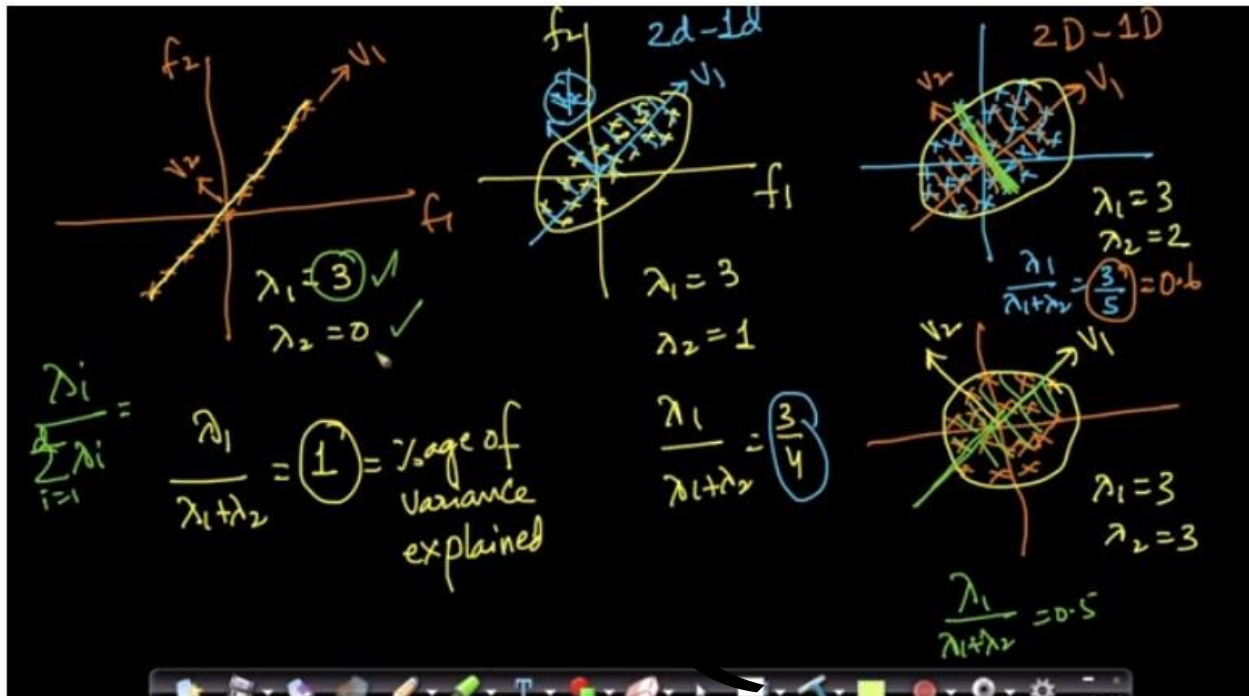 f₂
V₁
V₂
f₁
λ₁ = 3 ✓
λ₂ = 0 ✓
λi
d
Σ λi
i=1
=
λ₁
λ₁+λ₂
= 1 = %age of
variance
explained
f₂
2d-1d
V₁
f₁
λ₁ = 3
λ₂ = 1
λ₁
λ₁+λ₂
= 3/4
2D-1D
V₂
V₁
λ₁ = 3
λ₂ = 2
λ₁
λ₁+λ₂
= 3/5 = 0.6
V₂
V₁
λ₁ = 3
λ₂ = 3
λ₁
λ₁+λ₂
= 0.5
T